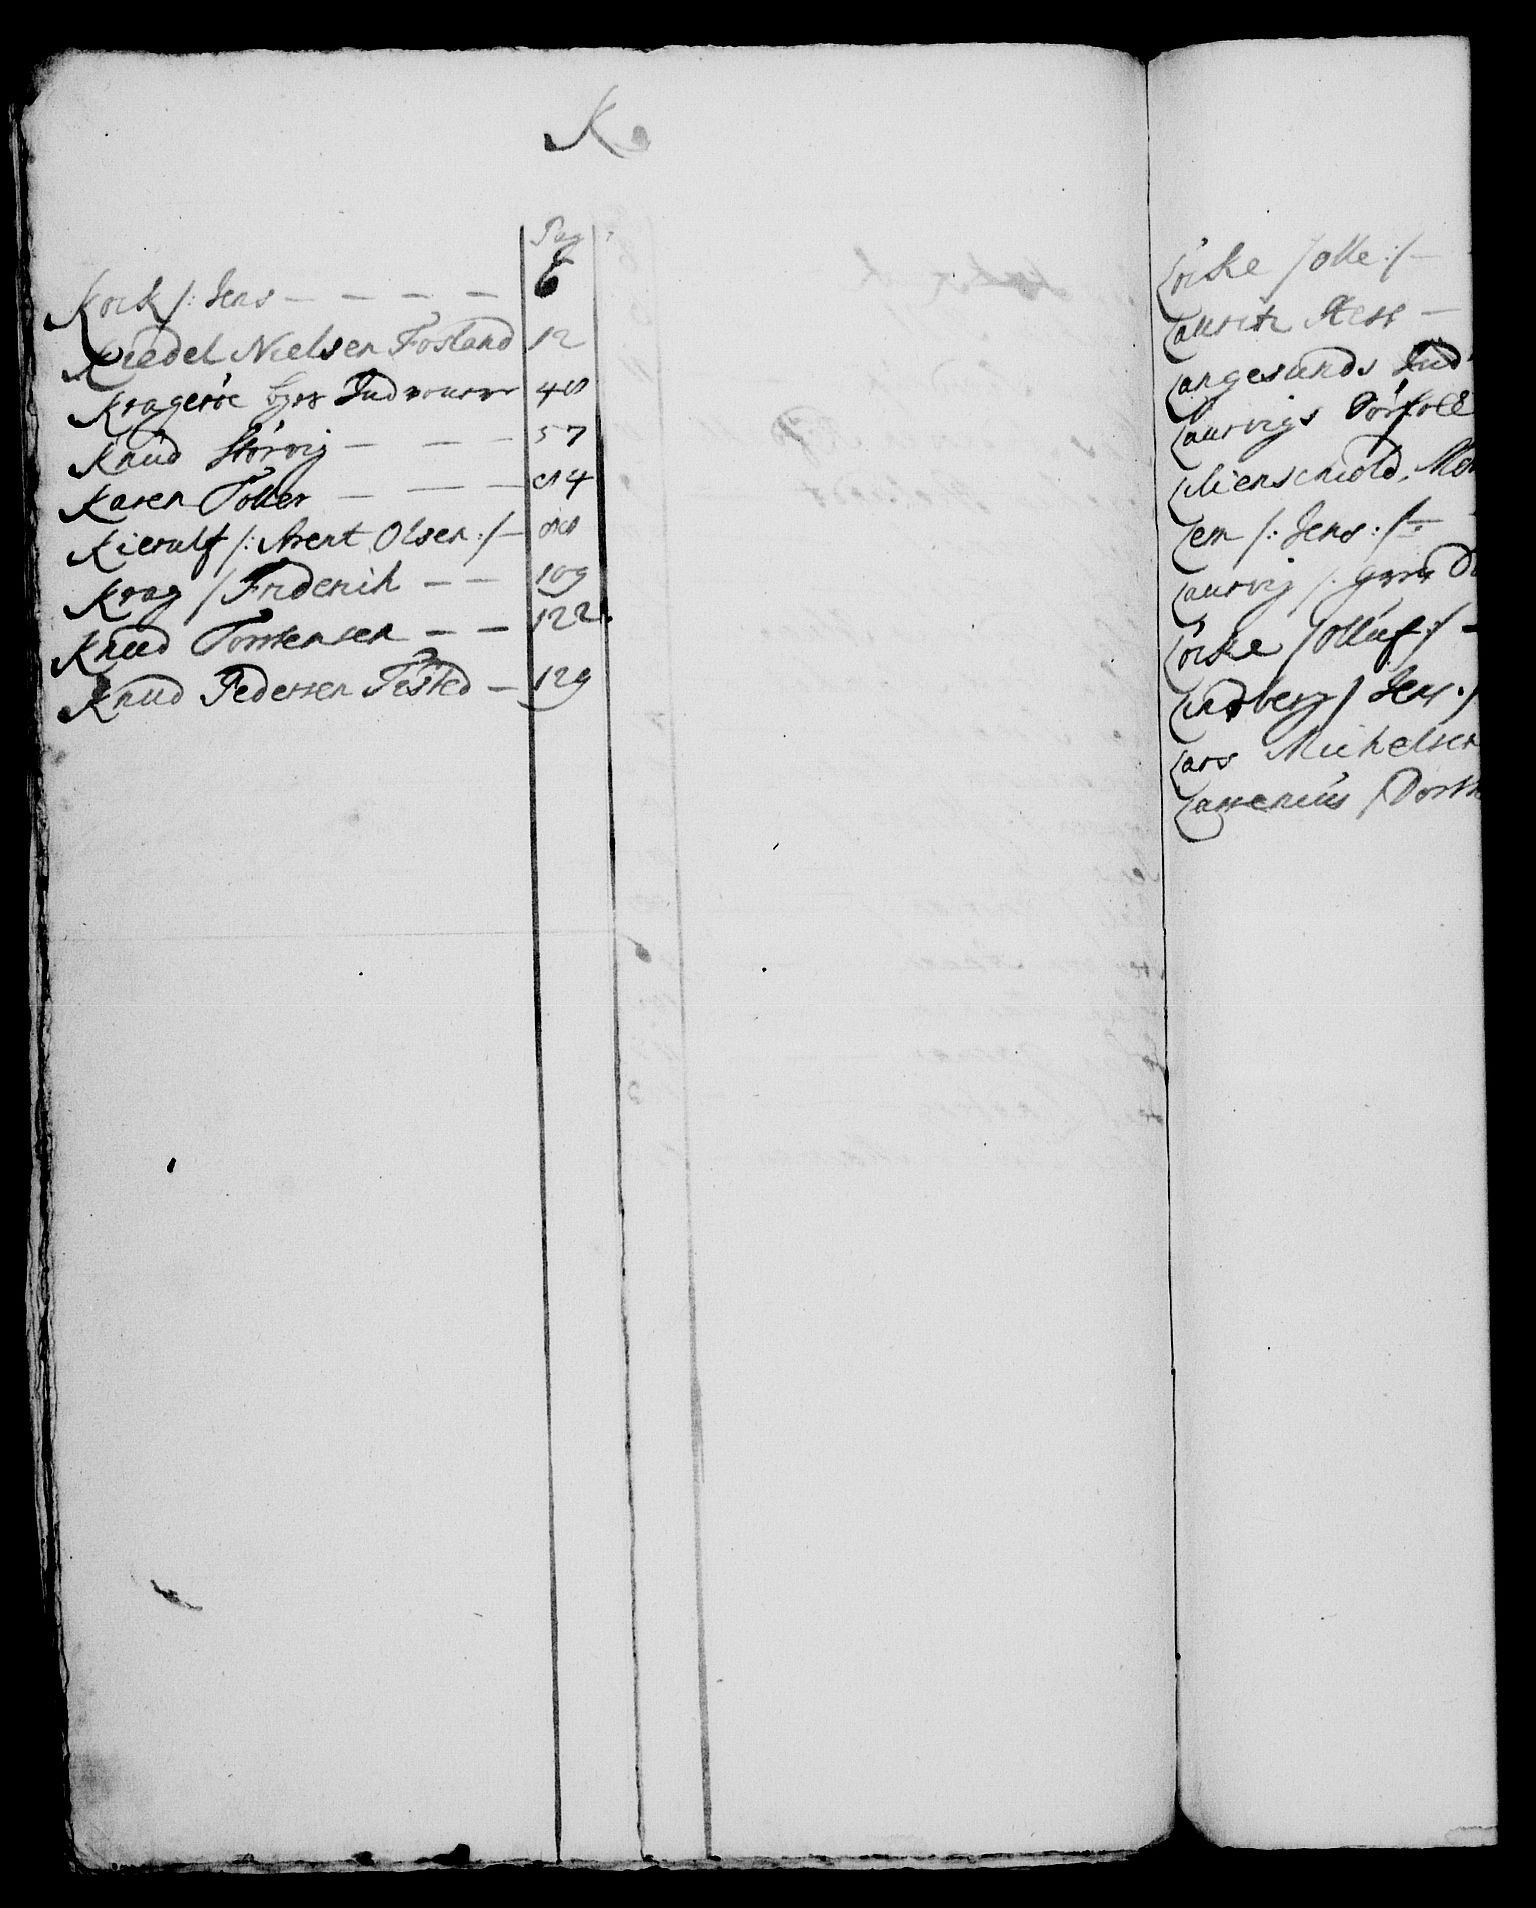 K.
Pag
Kock /: Jens — — — — 6
Kiedel Nielsen Fosland 12
Krageröe byes Indvonere 48
Knud Störvig — — — 57
Karen Toller — — — 84
Kierulf /: Arent Olsen :/ — 88
Krag / Friderich — — 109
Knud Torstensen — — 122.
Knud Pedersen Tisted — 129
Lörke / olle :/ —
Lauritz Hess —
Langesunds Ind
Laurvigs
Lilienschiold, Mor
Lem /: Jens :/ —
Laurvig /:
Lörke / olluf :/ —
Lindberg / Jens :/
Lars Michelsen
Lassenius / Dorth